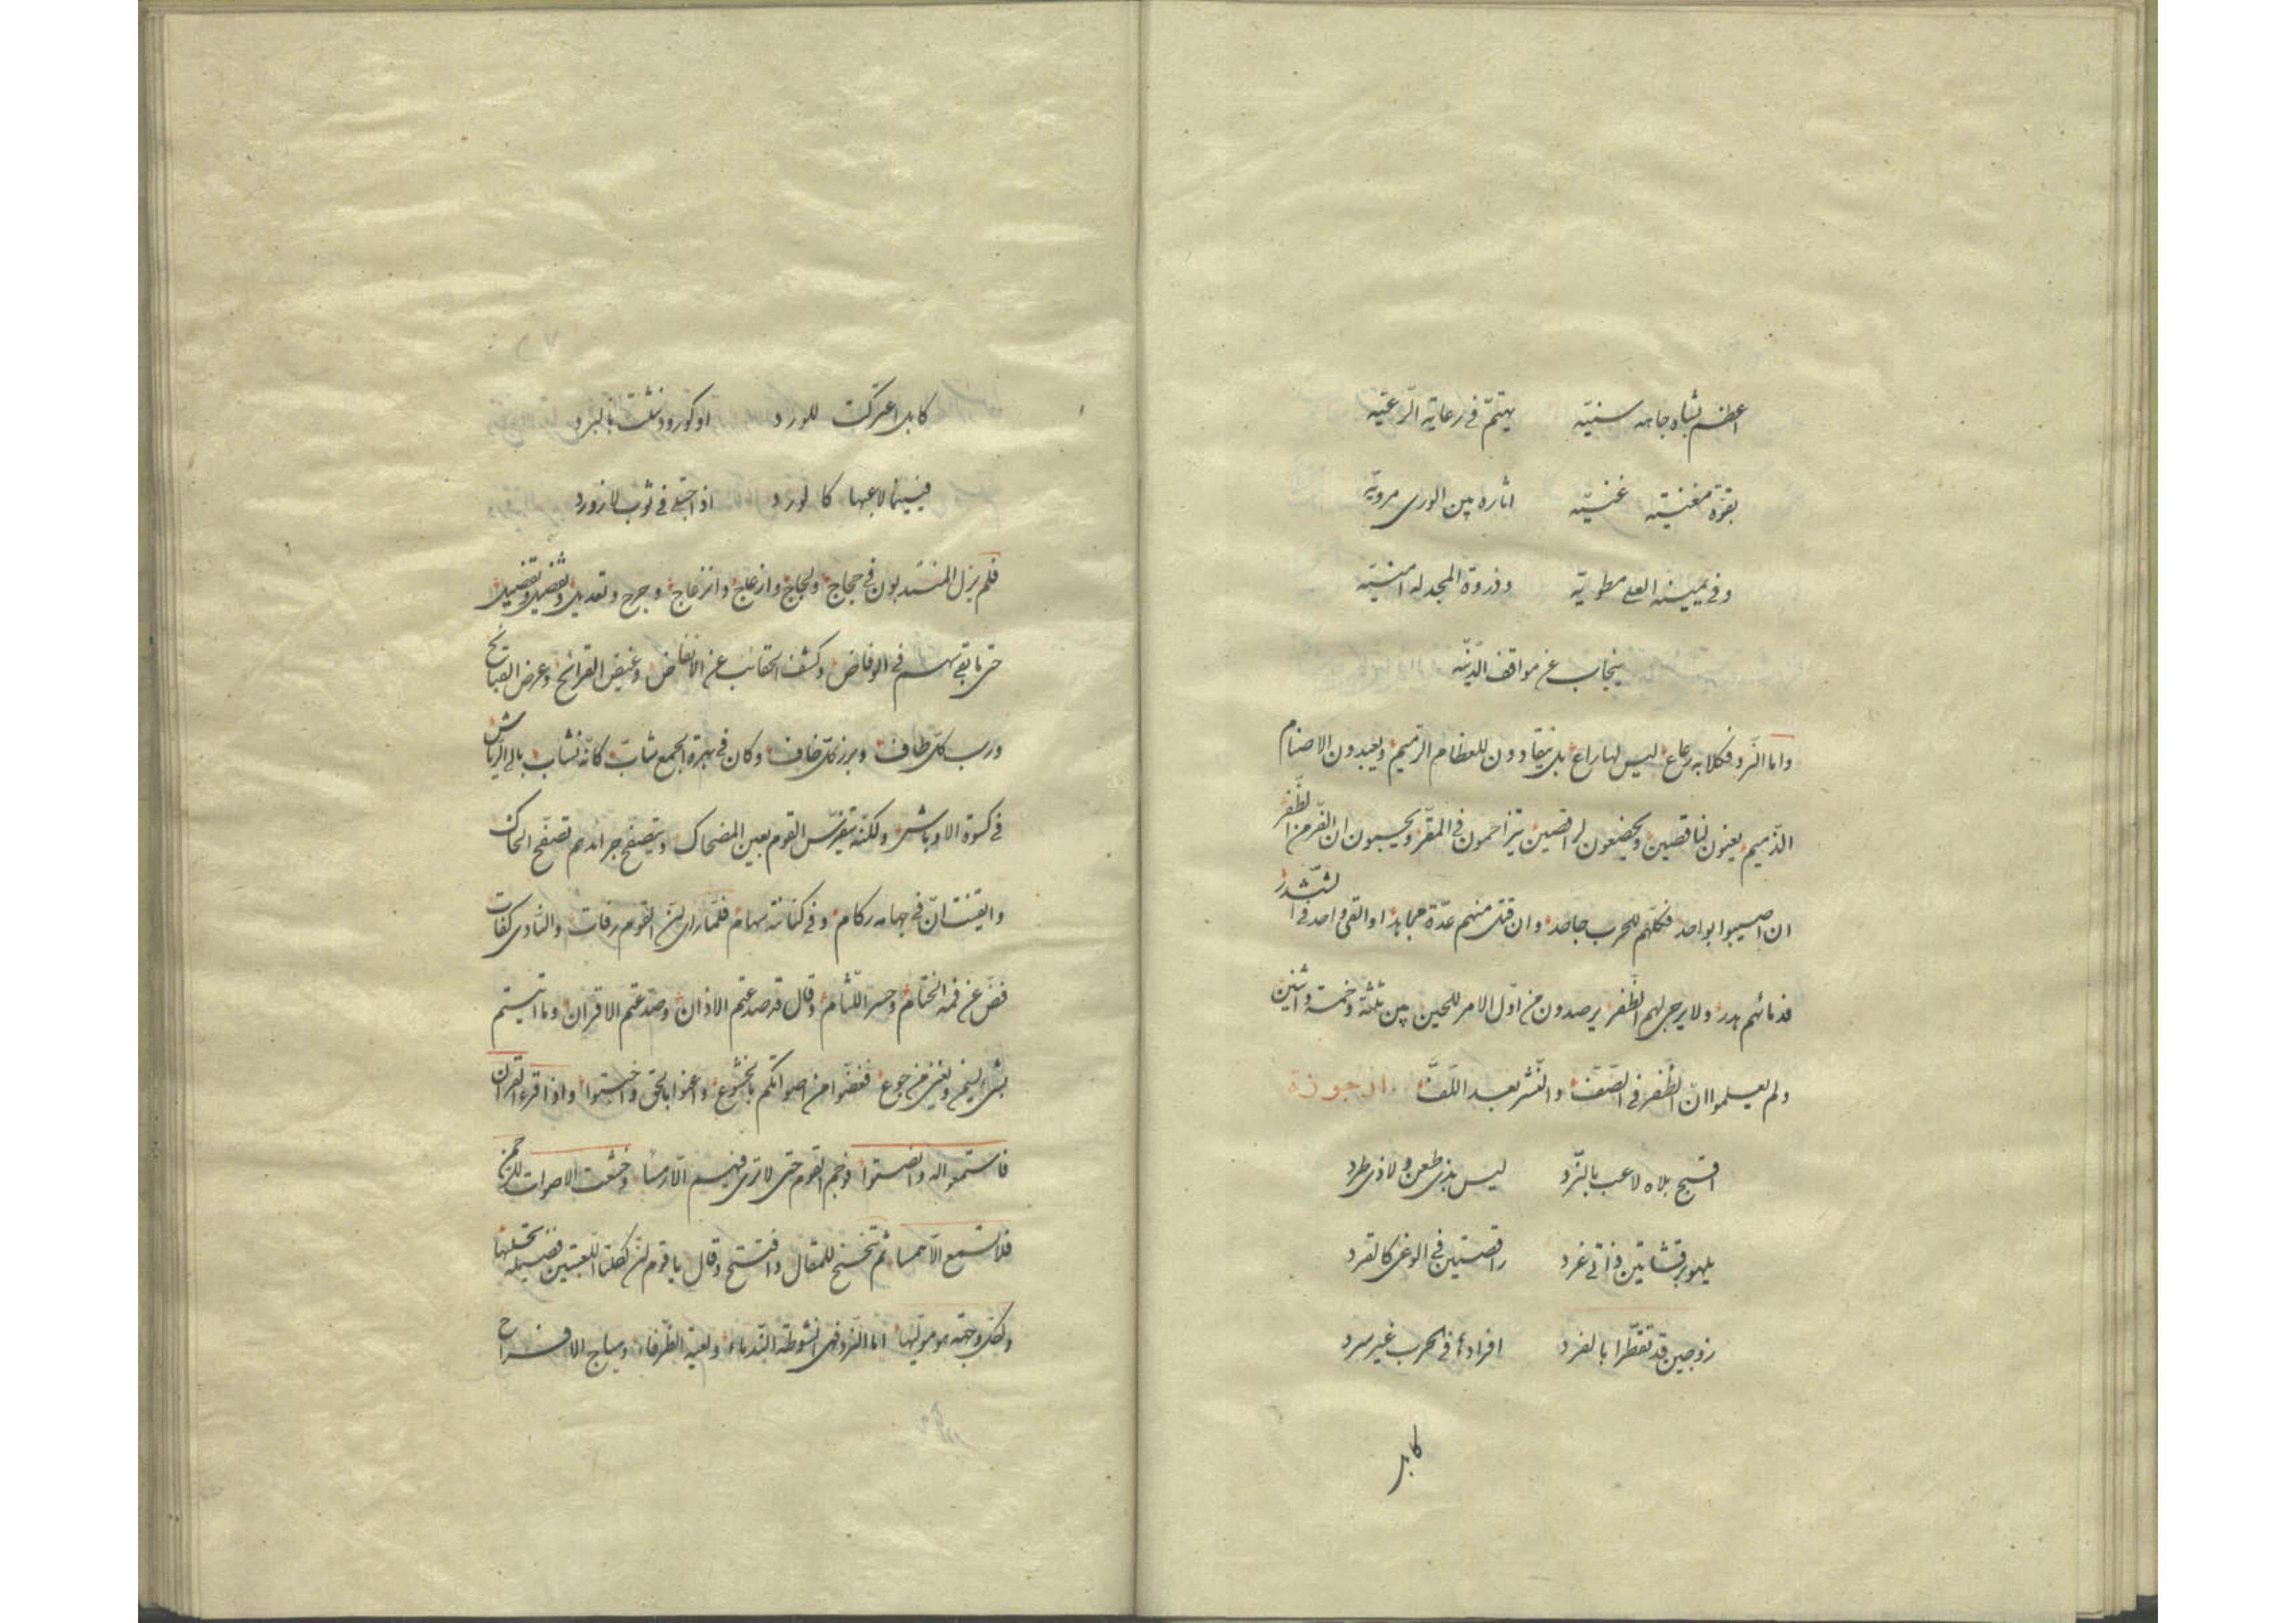 اعظم بشاه جاهه سنيّه يهتمّ في رعاية الرّعيّه
بقوّة مغنيته غنيّه اثاره بين الورى مرويّه
وفي يمينه العلى مطويّه وذروة المجد له امنيّه
ينجاب عن مواقف الدّنيّه
واما النّرد فكلابه رعاع ليس لها راع بل ينقادون للعظام الرّميم ويعبدون الاصنام
الذّميم يعنون لناقصين ويخضعون لراقصين يتزاحمون في المقرّ ويحسبون ان الفرّ من الظّفر
ان اصيبوا بواحد فكلّهم للحرب جاحد وان قتل منهم عدّة مجاهد او التقى واحد في الشّشدر
فدمائهم هدر ولا يرجى لهم الظّفر يرصدون من اوّل الامر للحين بين ثلثة وخمسة واثنين
ولم يعلموا انّ الظّفر في الصّفّ والنّشر بعد اللّفّ ارجوزة
اقبح بلاه لاعب بالنّرد ليس بذي طعن ولا ذي طرد
يلهو برقشاتين ذاتي غرد راقصتين في الوغى كالقرد
زوجين قد تقطّرا بالفرد افرادها في الحرب غير سرد
كابل
كابل اعتركت للورد او كورود شلّت بالبرد
فبينما لاعبها كالورد اذ اجتلى في ثوب لازورد
فلم يزل المنتدبون في حجاج ولجاج وازعاج وانزعاج وجرح وتعديل وتفضيل وتفضيل
حتى ما بقي سهم في الوفاض وكشف الحقائب عن الانفاض وغيض القرائح وعرض القبائح
ورسب كلّ طاف وبرز كلّ خاف وكان في بهرة الجمع شابّ كانّه نشاب بالي الرّياش
في كسوة الاوباش ولكنّه يتفرّس القوم بعين المضحاك ويتصفّح جرائدهم تصفّح الحكّاك
وايقنت انّ في جهامه ركام وفي كنانته سهام فلمّا راى لسن القوم رفات والنّادى كفات
فضّ عن فمه الختام وحسر اللّثام وقال قد صدعتم الاذان وصدعتم الاقران وما اتيتم
بشيء يسمن ويغني من جوع فغضّوا من اصواتكم بالخشوع واعنوا بالحق واخبتوا واذا قرء القران
فاستمعوا له وانصتوا فوجم القوم حتى لا ترى فيهم الّا رمسا وخشعت الاصوات للرحمن
فلا تسمع الّا همسا ثم تنحنح للمقال وافتتح وقال يا قوم لئن لكلتا اللّعبتين فضيلة تحلّيها
ولكلّ وجهة هو مولّيها اما النّرد فهي انشوطة النّدماء ولعبة الظّرفاء وهياج الافراح